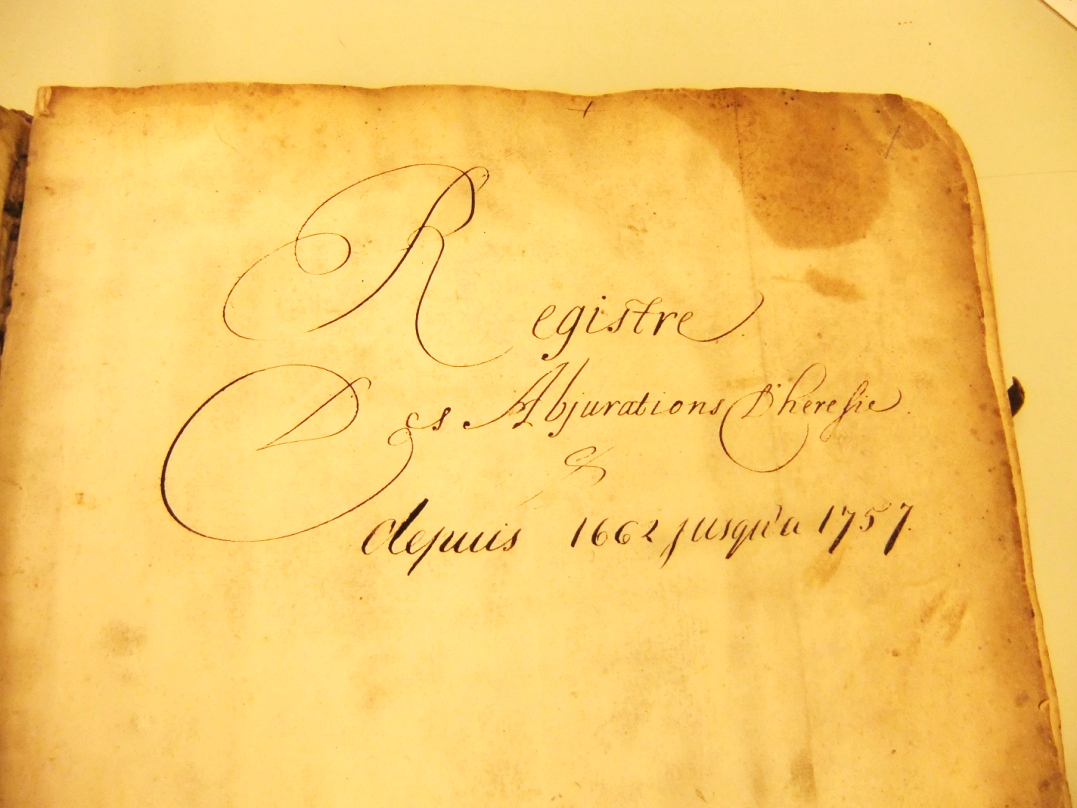 Registre
Des Abjurations D'heresie
depuis 1662 jusqu'a 1757.